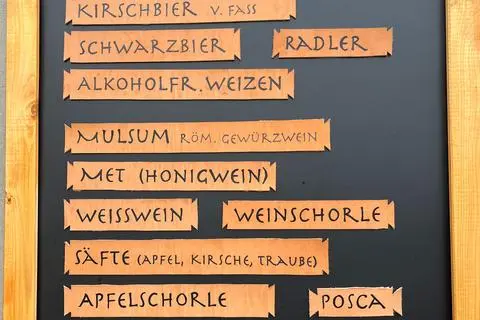 KIRSCHBIER V. FASS
SCHWARZBIER RADLER
ALKOHOLFR. WEIZEN
MULSUM RÖM. GEWÜRZWEIN
MET (HONIGWEIN)
WEISSWEIN WEINSCHORLE
SÄFTE (APFEL, KIRSCHE, TRAUBE)
APFELSCHORLE POSCA